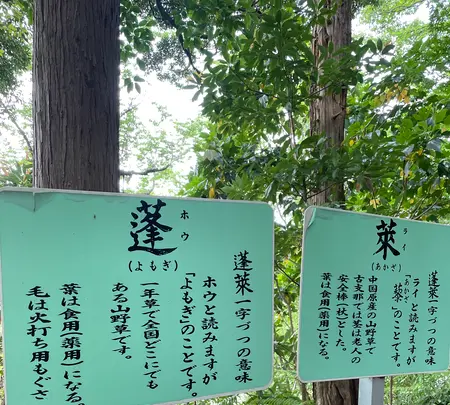 蓬
ホウ
(よもぎ)
蓬萊一字づつの意味
ホウと読みますが
「よもぎ」のことです。
一年草で全国どこにでも
ある山野草です。
葉は食用(薬用)になる。
毛は火打ち用もぐさ
萊
ライ
(あかざ)
蓬萊一字づつの意味
ライと読みますが
「藜」のことです。
あかざ
中国原産の山野草で
古支那では茎は老人の
安全棒(杖)とした。
葉は食用(薬用)になる。